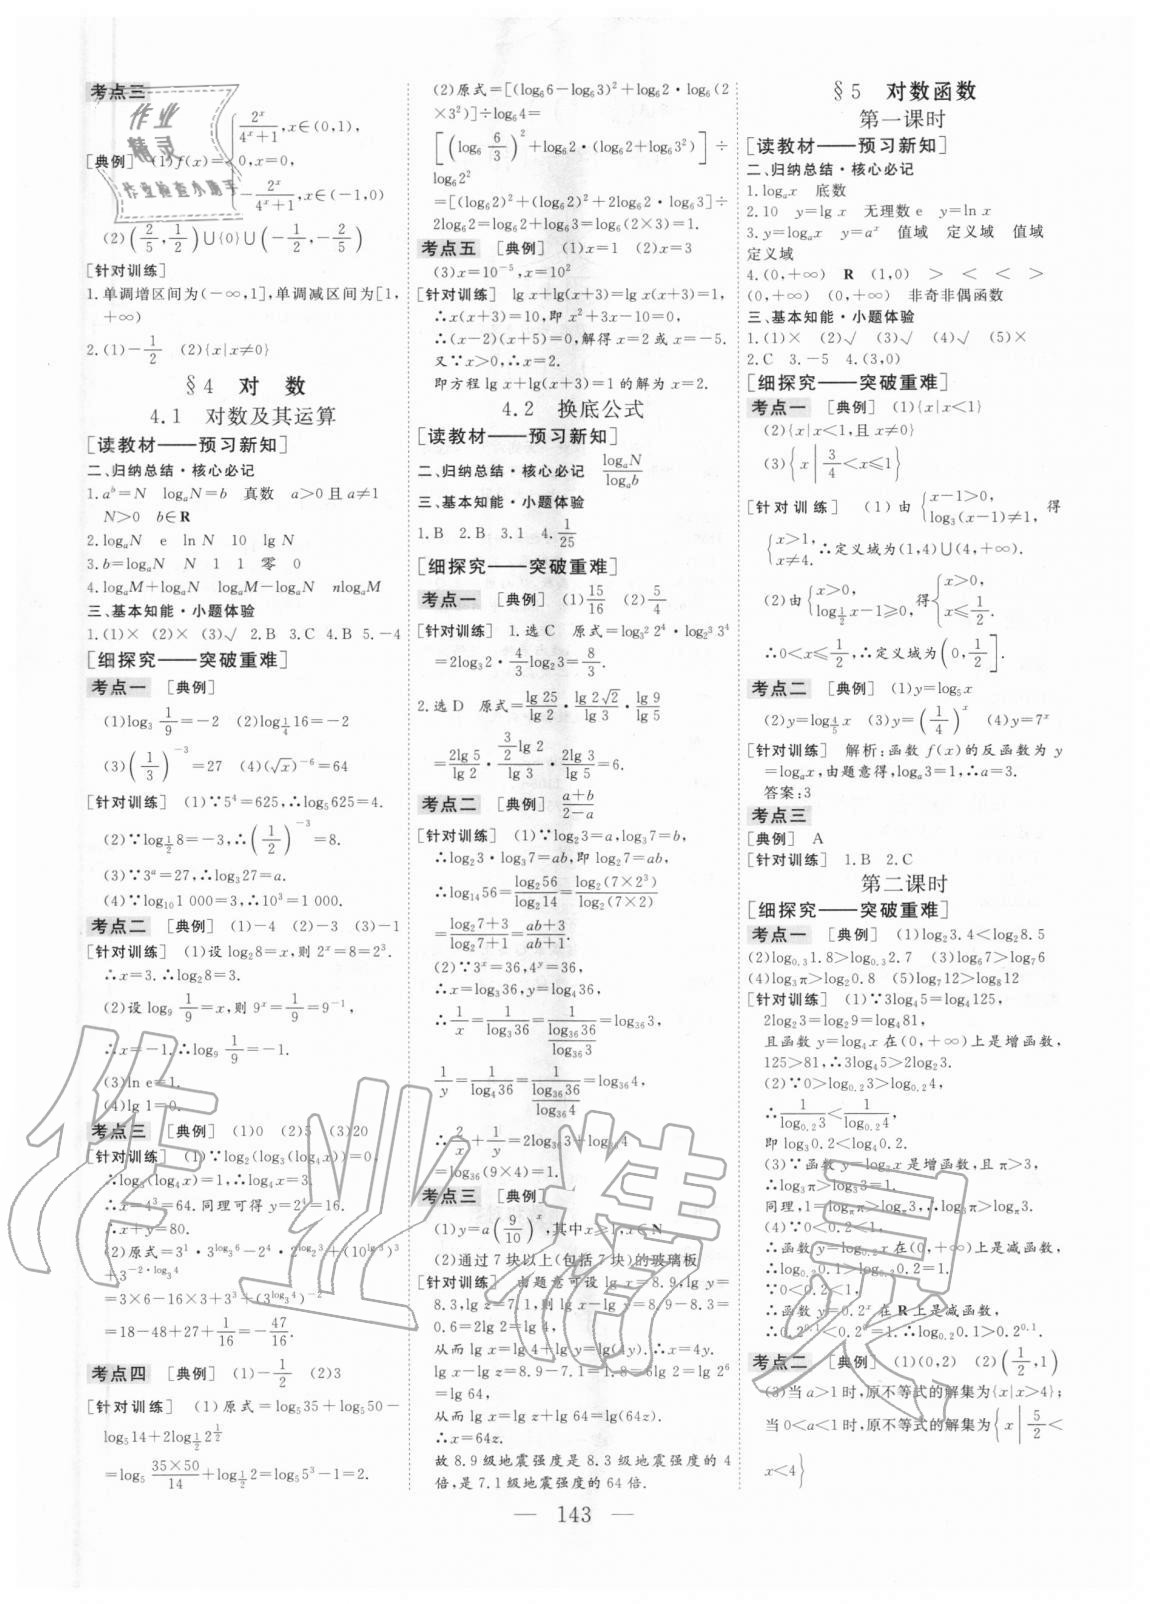 考点三
[典例] (1)f(x)={2^x/(4^x+1), x∈(0,1),
0, x=0,
-2^x/(4^x+1), x∈(-1,0)
(2)(2/5, 1/2)∪{0}∪(-1/2, -2/5)
[针对训练]
1.单调增区间为(-∞,1],单调减区间为[1,
+∞)
2.(1)-1/2 (2){x|x≠0}
§4 对 数
4.1 对数及其运算
[读教材——预习新知]
二、归纳总结·核心必记
1.a^b=N log_aN=b 真数 a>0且a≠1
N>0 b∈R
2.log_aN e ln N 10 lg N
3.b=log_aN N 1 1 零 0
4.log_aM+log_aN log_aM-log_aN nlog_aM
三、基本知能·小题体验
1.(1)× (2)× (3)√ 2.B 3.C 4.B 5.-4
[细探究——突破重难]
考点一 [典例]
(1)log_3 1/9=-2 (2)log_{1/4}16=-2
(3)(1/3)^{-3}=27 (4)(√x)^{-6}=64
[针对训练] (1)∵5^4=625,∴log_5 625=4.
(2)∵log_{1/2}8=-3,∴(1/2)^{-3}=8.
(3)∵3^a=27,∴log_3 27=a.
(4)∵log_10 1 000=3,∴10^3=1 000.
考点二 [典例] (1)-4 (2)-3 (3)-1
[针对训练] (1)设log_2 8=x,则2^x=8=2^3.
∴x=3.∴log_2 8=3.
(2)设log_9 1/9=x,则9^x=1/9=9^{-1},
∴x=-1,∴log_9 1/9=-1.
(3)ln e=1.
(4)lg 1=0.
考点三 [典例] (1)0 (2)5 (3)20
[针对训练] (1)∵log_2(log_3(log_4x))=0,
∴log_3(log_4x)=1,∴log_4x=3.
∴x=4^3=64.同理可得y=2^4=16.
∴x+y=80.
(2)原式=3^1·3^{log_3 6}-2^4·2^{log_2 3}+(10^{lg 3})^3
+3^{-2·log_3 4}
=3×6-16×3+3^3+(3^{log_3 4})^{-2}
=18-48+27+1/16=-47/16.
考点四 [典例] (1)-1/2 (2)3
[针对训练] (1)原式=log_5 35+log_5 50-
log_5 14+2log_{1/2}2^{1/2}
=log_5 (35×50)/14+log_{1/2}2=log_5 5^3-1=2.
(2)原式=[(log_6 6-log_6 3)^2+log_6 2·log_6(2
×3^2)]÷log_6 4=
[(log_6 6/3)^2+log_6 2·(log_6 2+log_6 3^2)]÷
log_6 2^2
=[(log_6 2)^2+(log_6 2)^2+2log_6 2·log_6 3]÷
2log_6 2=log_6 2+log_6 3=log_6(2×3)=1.
考点五 [典例] (1)x=1 (2)x=3
(3)x=10^{-5},x=10^2
[针对训练] lg x+lg(x+3)=lg x(x+3)=1,
∴x(x+3)=10,即x^2+3x-10=0,
∴(x-2)(x+5)=0,解得x=2或x=-5.
又∵x>0,∴x=2.
即方程lg x+lg(x+3)=1的解为x=2.
4.2 换底公式
[读教材——预习新知]
二、归纳总结·核心必记 log_aN/log_ab
三、基本知能·小题体验
1.B 2.B 3.1 4.1/25
[细探究——突破重难]
考点一 [典例] (1)15/16 (2)5/4
[针对训练] 1.选C 原式=log_{3^2}2^4·log_{2^3}3^4
=2log_3 2·4/3 log_2 3=8/3.
2.选D 原式=lg 25/lg 2·lg 2√2/lg 3·lg 9/lg 5
=2lg 5/lg 2·(3/2 lg 2)/lg 3·2lg 3/lg 5=6.
考点二 [典例] (a+b)/(2-a)
[针对训练] (1)∵log_2 3=a,log_3 7=b,
∴log_2 3·log_3 7=ab,即log_2 7=ab,
∴log_14 56=log_2 56/log_2 14=log_2(7×2^3)/log_2(7×2)
=(log_2 7+3)/(log_2 7+1)=(ab+3)/(ab+1).
(2)∵3^x=36,4^y=36,
∴x=log_3 36,y=log_4 36,
∴1/x=1/log_3 36=1/(log_36 36/log_36 3)=log_36 3,
1/y=1/log_4 36=1/(log_36 36/log_36 4)=log_36 4,
∴2/x+1/y=2log_36 3+log_36 4
=log_36(9×4)=1.
考点三 [典例]
(1)y=a(9/10)^x,其中x≥1,x∈N
(2)通过7块以上(包括7块)的玻璃板
[针对训练] 由题意可设lg x=8.9,lg y=
8.3,lg z=7.1,则lg x-lg y=8.9-8.3=
0.6=2lg 2=lg 4,
从而lg x=lg 4+lg y=lg(4y).∴x=4y.
lg x-lg z=8.9-7.1=1.8=6lg 2=lg 2^6
=lg 64,
从而lg x=lg 64+lg z=lg(64z),
∴x=64z.
故8.9级地震强度是8.3级地震强度的4
倍,是7.1级地震强度的64倍.
§5 对数函数
第一课时
[读教材——预习新知]
二、归纳总结·核心必记
1.log_ax 底数
2.10 y=lg x 无理数e y=ln x
3.y=log_ax y=a^x 值域 定义域 值域
定义域
4.(0,+∞) R (1,0) > < < >
(0,+∞) (0,+∞) 非奇非偶函数
三、基本知能·小题体验
1.(1)× (2)√ (3)√ (4)√ (5)×
2.C 3.-5 4.(3,0)
[细探究——突破重难]
考点一 [典例] (1){x|x<1}
(2){x|x<1,且x≠0}
(3){x|3/4<x≤1}
[针对训练] (1)由{x-1>0, log_3(x-1)≠1,得
{x>1, x≠4.∴定义域为(1,4)∪(4,+∞).
(2)由{x>0, log_{1/2}x-1≥0,得{x>0, x≤1/2.
∴0<x≤1/2,∴定义域为(0,1/2].
考点二 [典例] (1)y=log_5x
(2)y=log_{4/5}x (3)y=(1/4)^x (4)y=7^x
[针对训练] 解析:函数f(x)的反函数为y
=log_ax,由题意得,log_a3=1,∴a=3.
答案:3
考点三
[典例] A
[针对训练] 1.B 2.C
第二课时
[细探究——突破重难]
考点一 [典例] (1)log_2 3.4<log_2 8.5
(2)log_0.3 1.8>log_0.3 2.7 (3)log_6 7>log_7 6
(4)log_3π>log_2 0.8 (5)log_7 12>log_8 12
[针对训练] (1)∵3log_4 5=log_4 125,
2log_2 3=log_2 9=log_4 81,
且函数y=log_4x在(0,+∞)上是增函数,
125>81,∴3log_4 5>2log_2 3.
(2)∵0>log_0.2 3>log_0.2 4,
∴1/log_0.2 3<1/log_0.2 4,
即log_3 0.2<log_4 0.2.
(3)∵函数y=log_3x是增函数,且π>3,
∴log_3π>log_3 3=1.
同理,1=log_ππ>log_π3,∴log_3π>log_π3.
(4)∵0<0.2<1,
∴函数y=log_0.2x在(0,+∞)上是减函数,
∴log_0.2 0.1>log_0.2 0.2=1.
∵0<0.2<1,
∴函数y=0.2^x在R上是减函数,
∴0.2^0.1<0.2^0=1.∴log_0.2 0.1>0.2^0.1.
考点二 [典例] (1)(0,2) (2)(1/2,1)
(3)当a>1时,原不等式的解集为{x|x>4};
当0<a<1时,原不等式的解集为{x|5/2<
x<4}
143
作业
精灵
作业检查小助手
作业精灵